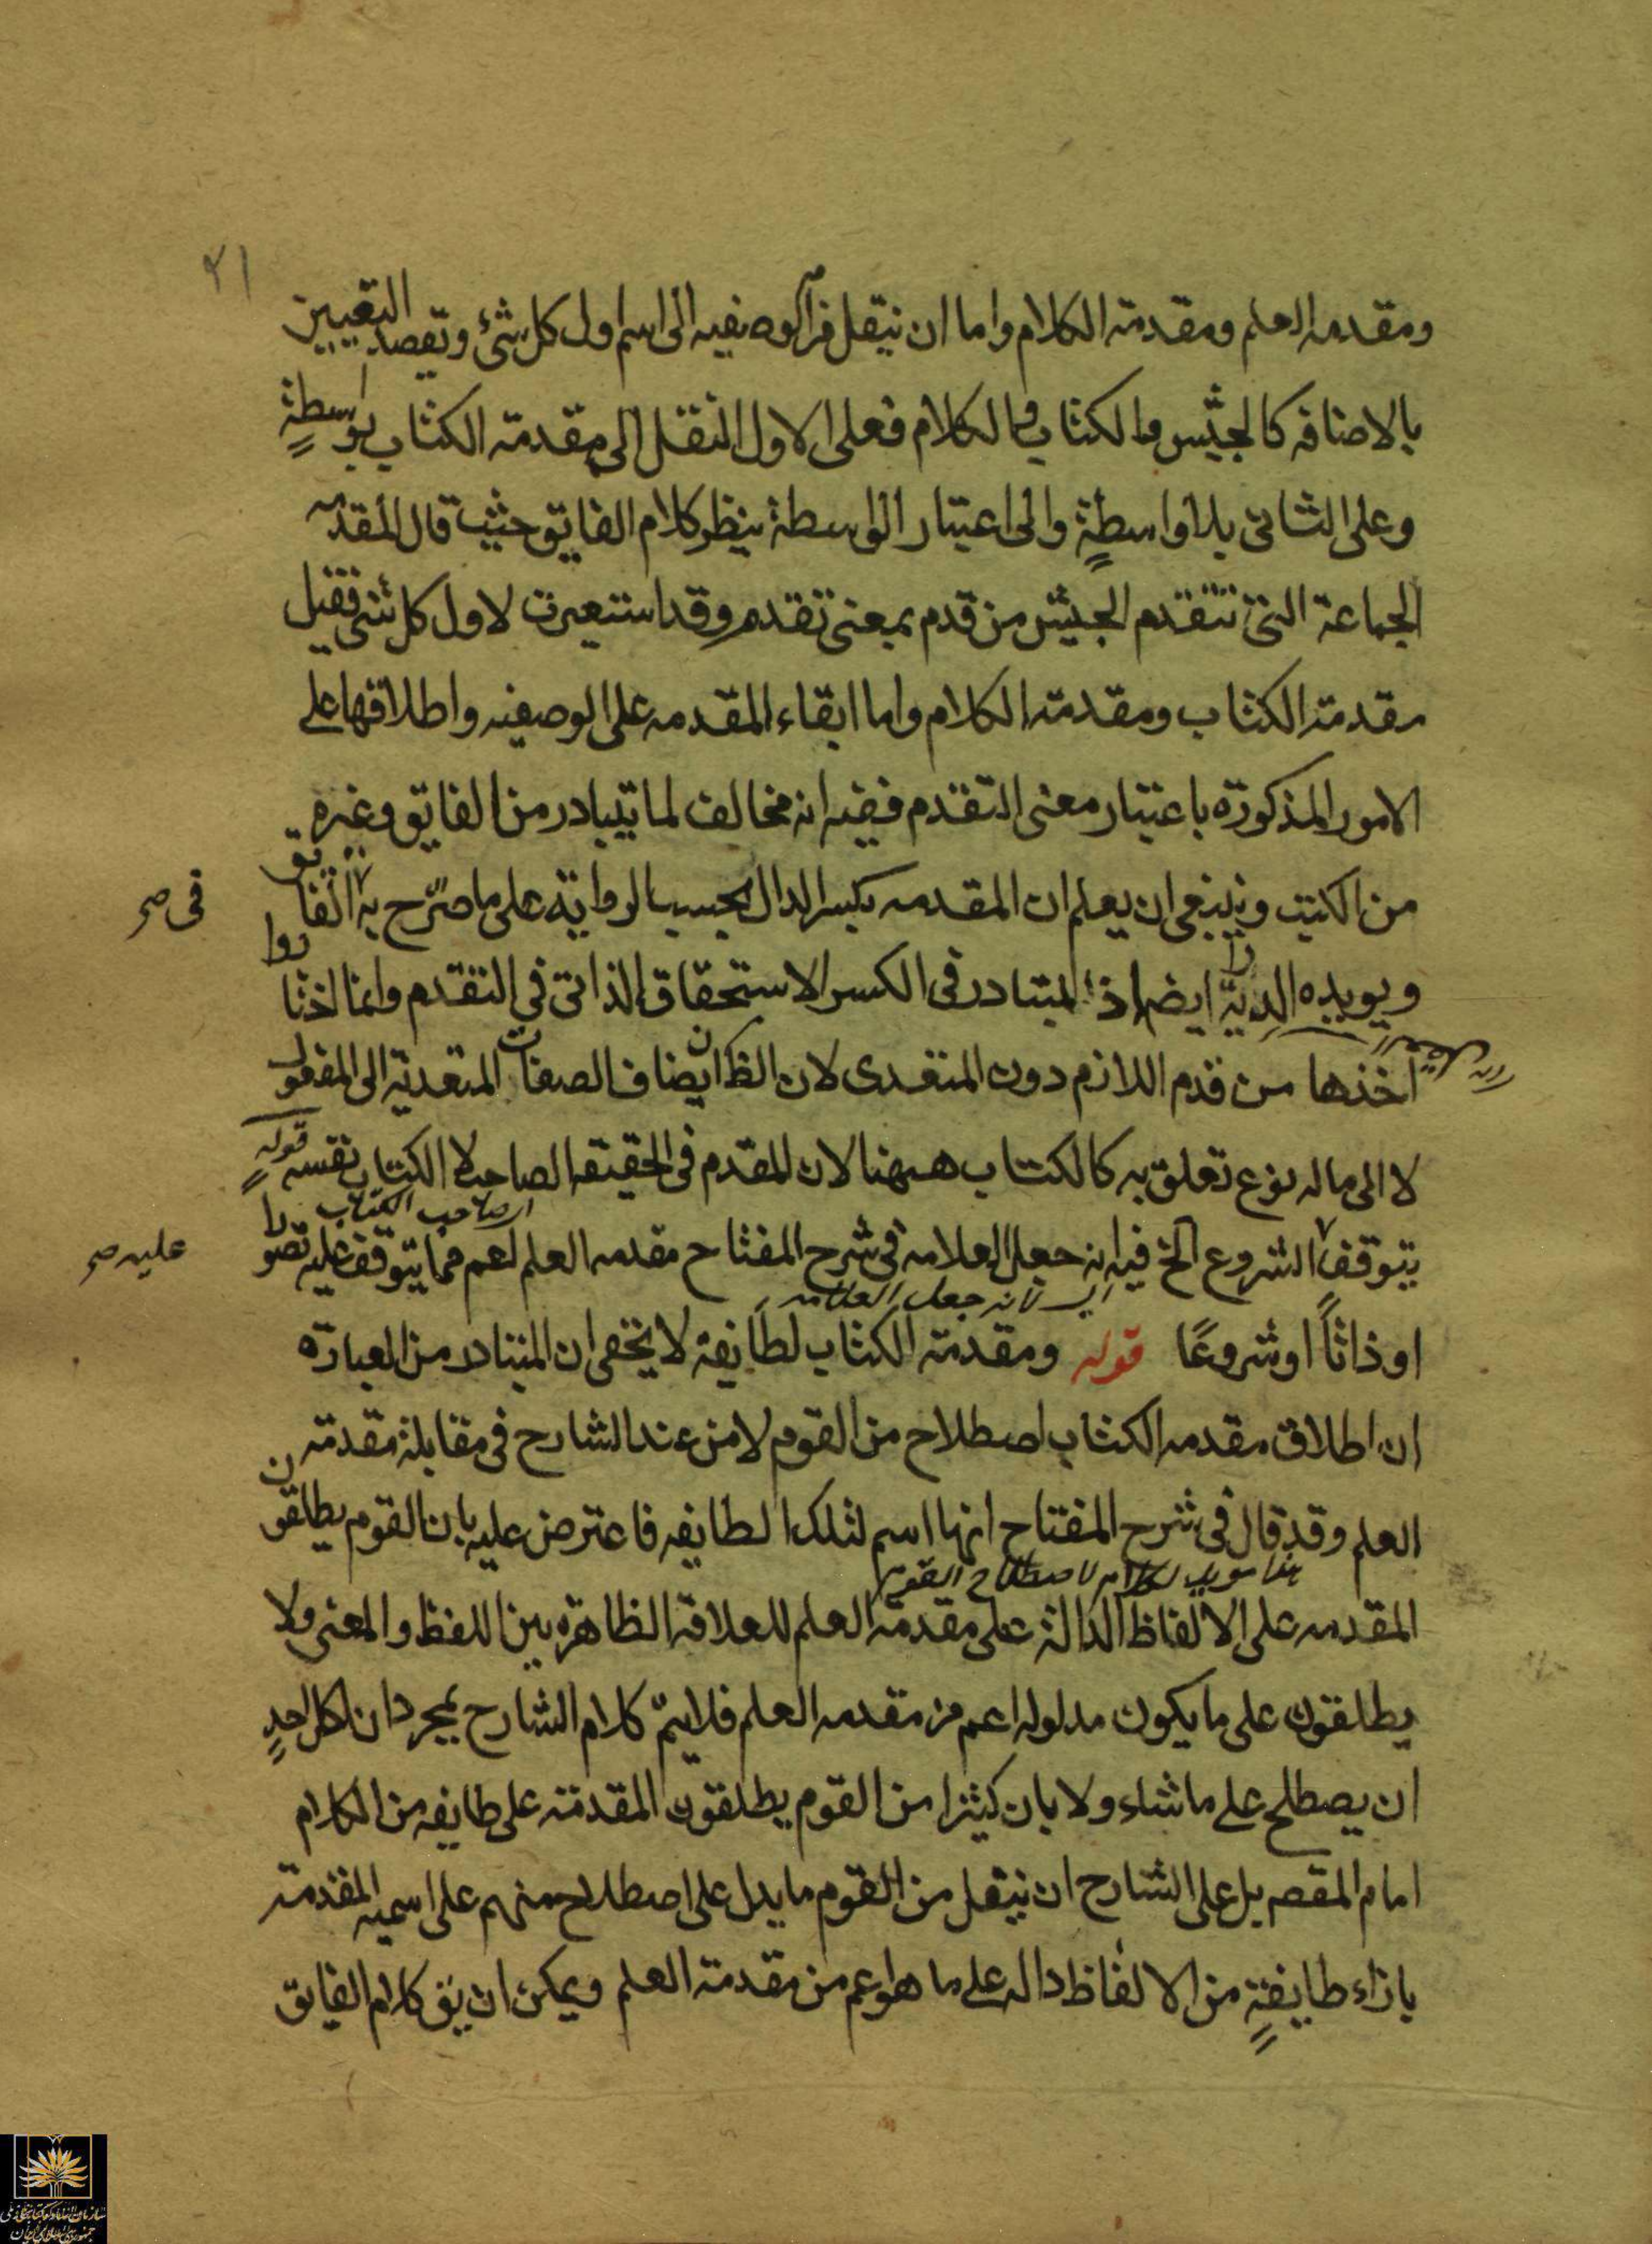 ٢١
ومقدمه العلم ومقدمة الكلام واما ان ينقل من الوصفيه الى اسم اول كل شئ ويقصد التعيين
بالاضافه كالجيش والكتاب والكلام فعلى الاول النقل الى مقدمة الكتاب بواسطةٍ
وعلى الثانى بلا واسطةٍ والى اعتبار الواسطة ينظر كلام الفايق حيث قال المقدمه
الجماعة التى تتقدم الجيش من قدم بمعنى تقدم وقد استعيرت لاول كل شئ فقيل
مقدمة الكتاب ومقدمة الكلام واما ابقاء المقدمه على الوصفيه واطلاقها على
الامور المذكورة باعتبار معنى التقدم ففيه انه مخالف لما يتبادر من الفايق وغيره
من الكتب وينبغى ان يعلم ان المقدمه بكسر الدال بحسب الرواية على ما صرّح به الفايق
فى صح
ويويده الدراية ايضا اذ المتبادر فى الكسر الاستحقاق الذاتى فى التقدم وانما اختاروا
اخذها من قدم اللازم دون المتعدى لان الظ ان يضاف الصفات المتعدية الى المفعول
لا الى ما له نوع تعلق به كالكتاب ههنا لان المقدم فى الحقيقه الصاحب لا الكتاب نفسه قوله
اى صاحب الكتاب
يتوقف الشروع الخ فيه انه جعل العلامه فى شرح المفتاح مقدمه العلم اعم مما يتوقف عليه تصورا
عليه صح
اى لانه جعل العلامه
او ذاتاً او شروعًا قوله ومقدمة الكتاب لطايفة لا يخفى ان المتبادر من العبارة
ان اطلاق مقدمه الكتاب اصطلاح من القوم لا من عند الشارح فى مقابلة مقدمة
العلم وقد قال فى شرح المفتاح انها اسم لتلك الطايفه فاعترض عليه بان القوم يطلقون
المقدمه على الالفاظ الدالة على مقدمة العلم للعلاقة الظاهرة بين اللفظ والمعنى ولا
يطلقون على ما يكون مدلوله اعم من مقدمه العلم فلا يتمّ كلام الشارح بمجرد ان لكل احدٍ
ان يصطلح على ما شاء ولا بان كثيرا من القوم يطلقون المقدمة على طايفه من الكلام
امام المقصد بل على الشارح ان ينقل من القوم ما يدل على اصطلاح منهم على اسميه المقدمة
بازاء طايفةٍ من الالفاظ داله على ما هو اعم من مقدمة العلم ويمكن ان يق كلام الفايق